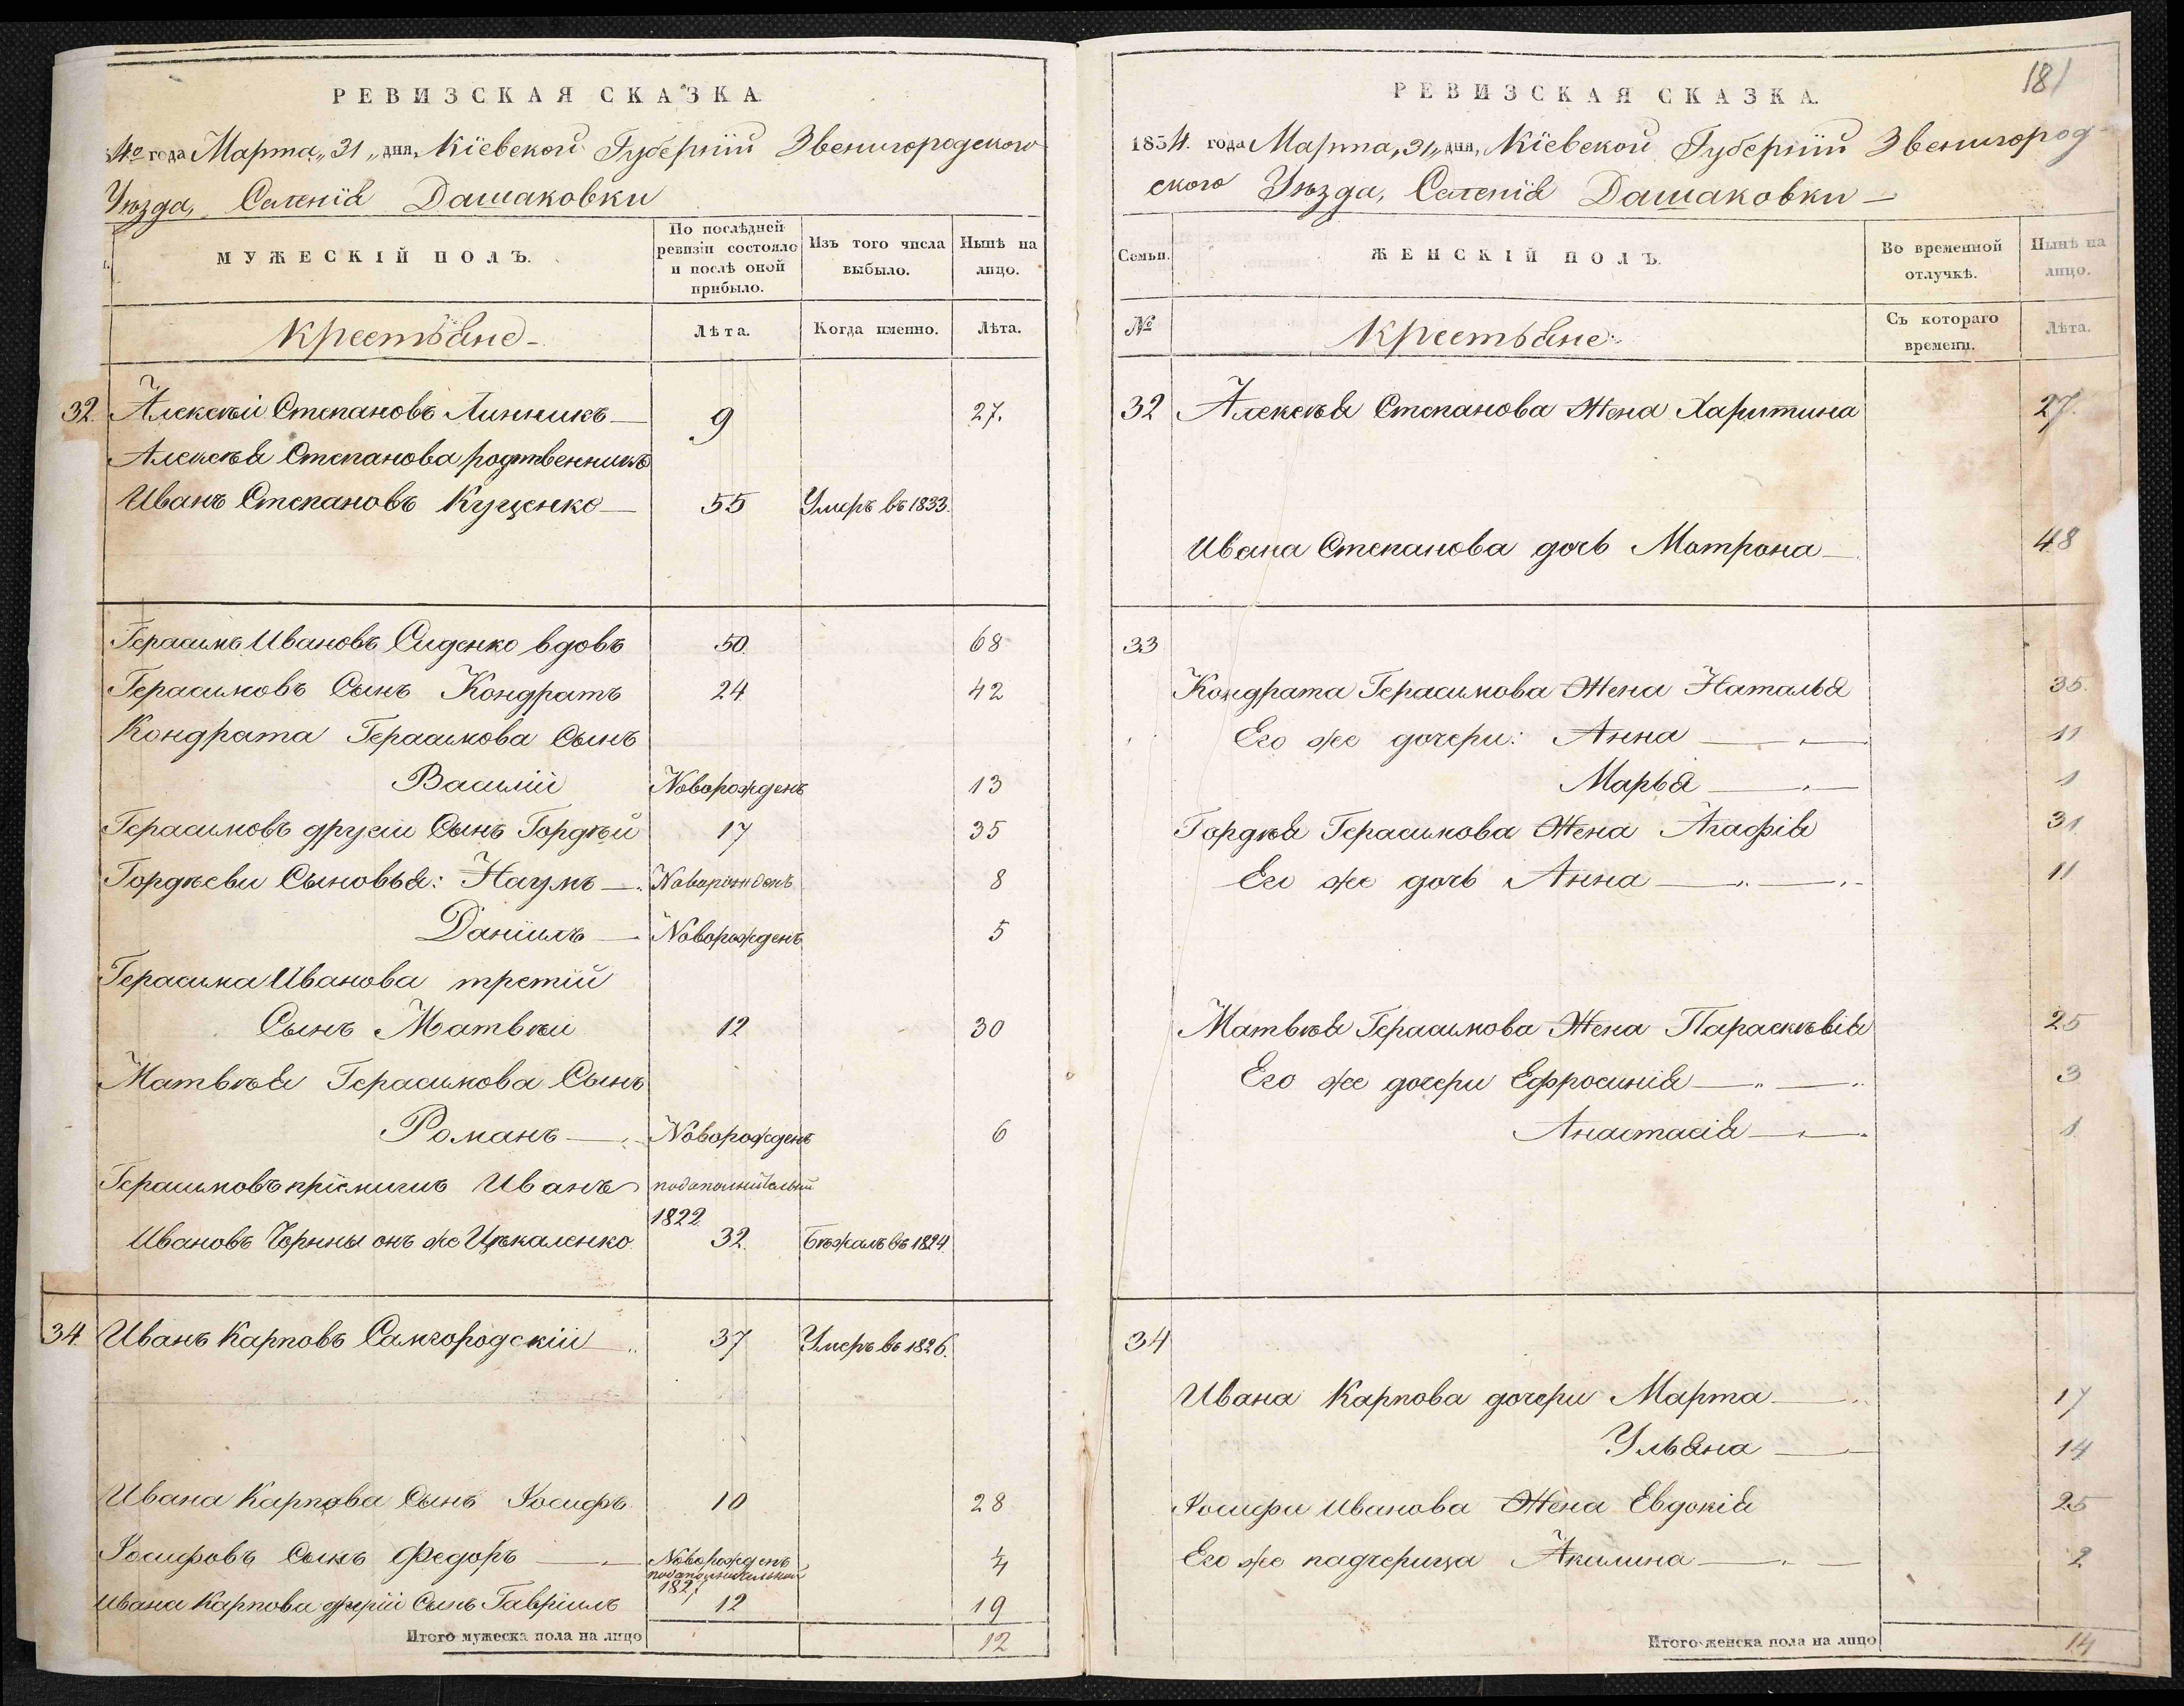 РЕВИЗСКАЯ СКАЗКА.
4го года Марта „31„ дня, Кіевской Губерніи Звенигородского
Уѣзда, Селенія Дашаковки
МУЖЕСКІЙ ПОЛЪ.
По послѣдней ревизіи состояло и послѣ оной прибыло.
Изъ того числа выбыло.
Нынѣ на лицо.
Крестьяне
Лѣта.
Когда именно.
Лѣта.
32. Алексѣй Степановъ Линникъ 9 27.
Алексѣя Степанова родственникъ
Иванъ Степановъ Куценко 55 Умеръ въ 1833.
Герасимъ Ивановъ Сиденко вдовъ 50. 68
Герасимовъ Сынъ Кондратъ 24 42
Кондрата Герасимова Сынъ
Василій Новорожденъ 13
Герасимовъ другій Сынъ Гордѣй 17 35
Гордѣеви Сыновья: Наумъ Новорожденъ 8
Даніилъ Новорожденъ 5
Герасима Иванова третій
Сынъ Матвѣй 12 30
Матвѣя Герасимова Сынъ
Романъ Новорожденъ 6
Герасимовъ пріемышъ Иванъ подополнительной
1822
Ивановъ Чорный онъ же Цѣкаленко 32. Бѣжалъ въ 1824
34. Иванъ Карповъ Самгородскій 37 Умеръ въ 1826.
Ивана Карпова Сынъ Іосифъ 10 28
Іосифовъ Сынъ Федоръ Новорожденъ 1/4
подополнительной
1827
Ивана Карпова другій Сынъ Гавріилъ 12 19
Итого мужеска пола на лицо 12
181
РЕВИЗСКАЯ СКАЗКА.
1854. года Марта „31„ дня, Кіевской Губерніи Звенигород-
ского Уѣзда, Селенія Дашаковки
Семьи.
ЖЕНСКІЙ ПОЛЪ.
Во временной отлучкѣ.
Нынѣ на лицо.
№
Крестьяне
Съ котораго времени.
Лѣта.
32 Алексѣя Степанова Жена Харитина 27.
Ивана Степанова дочь Матрона 48
33
Кондрата Герасимова Жена Наталья 35.
Его же дочери: Анна 11
Марья 1
Гордѣя Герасимова Жена Агафія 31
Его же дочь Анна 11
Матвѣя Герасимова Жена Параскѣвія 25
Его же дочери Ефросинія 3
Анастасія 1
34
Ивана Карпова дочери Марта 17
Ульяна 14
Іосифа Иванова Жена Евдокія 25
Его же падчерица Акилина 2
Итого женска пола на лицо 14